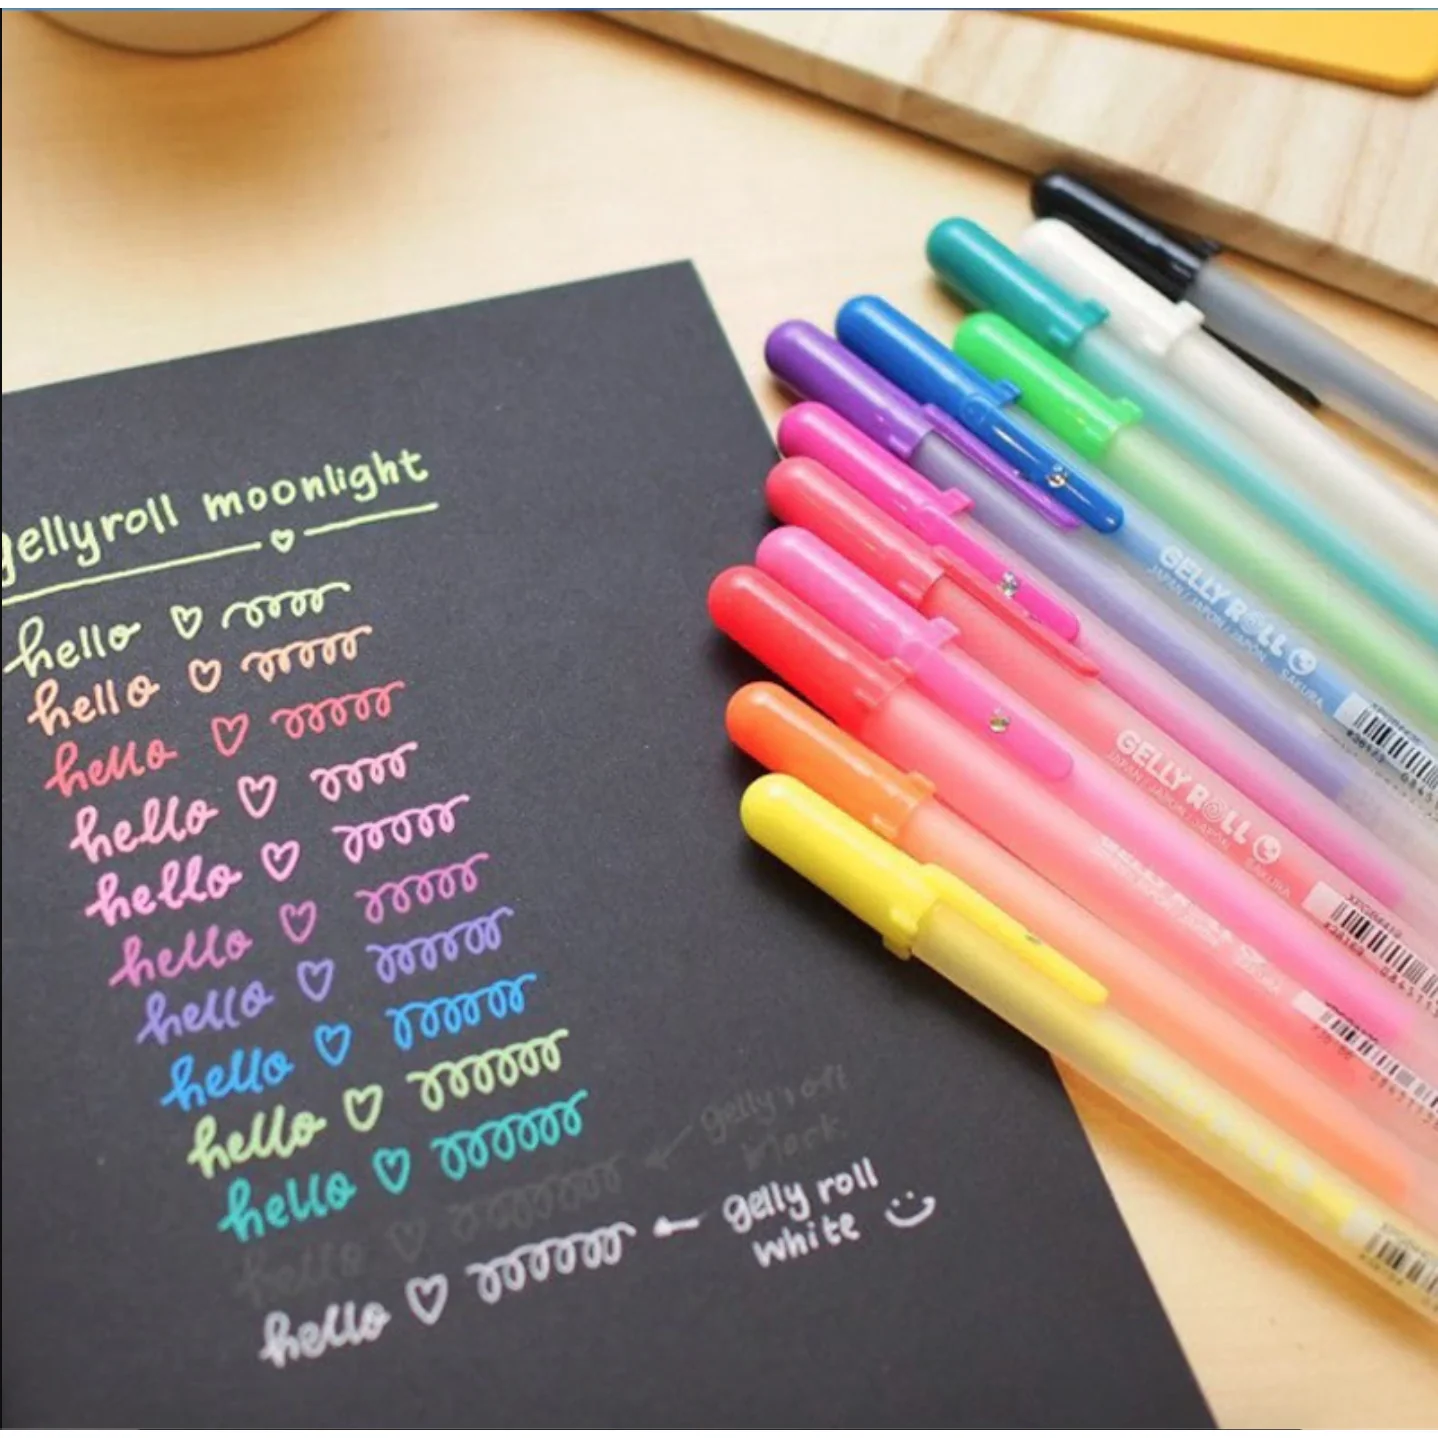 gellyroll moonlight
hello
hello
hello
hello
hello
hello
hello
hello
hello
hello
hello
hello
gelly roll
black
gelly roll
white
GELLY ROLL
JAPAN / JAPON / JAPÓN SAKURA
GELLY ROLL
JAPAN / JAPON / JAPÓN SAKURA